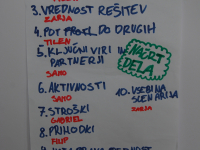 3. VREDNOST REŠITEV
ZARJA
4. POT DO DRUGIH
TILEN
5. KLJUČNI VIRI IN
PARTNERJI
SAMO
NAČRT
DELA
6. AKTIVNOSTI
SAMO
7. STROŠKI
GABRIEL
8. PRIHODKI
FILIP
10. VSEBINA
SCENARIJA
ZARJA